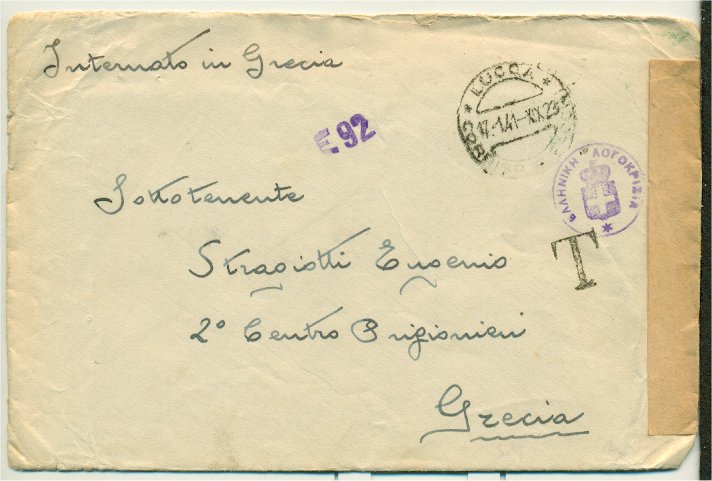 Internato in Grecia
LUCCA
17·1·41-XIX 23
E 92
ΕΛΛΗΝΙΚΗ ΛΟΓΟΚΡΙΣΙΑ
T
Sottotenente
Stragiotti Eugenio
2° Centro Prigionieri
Grecia